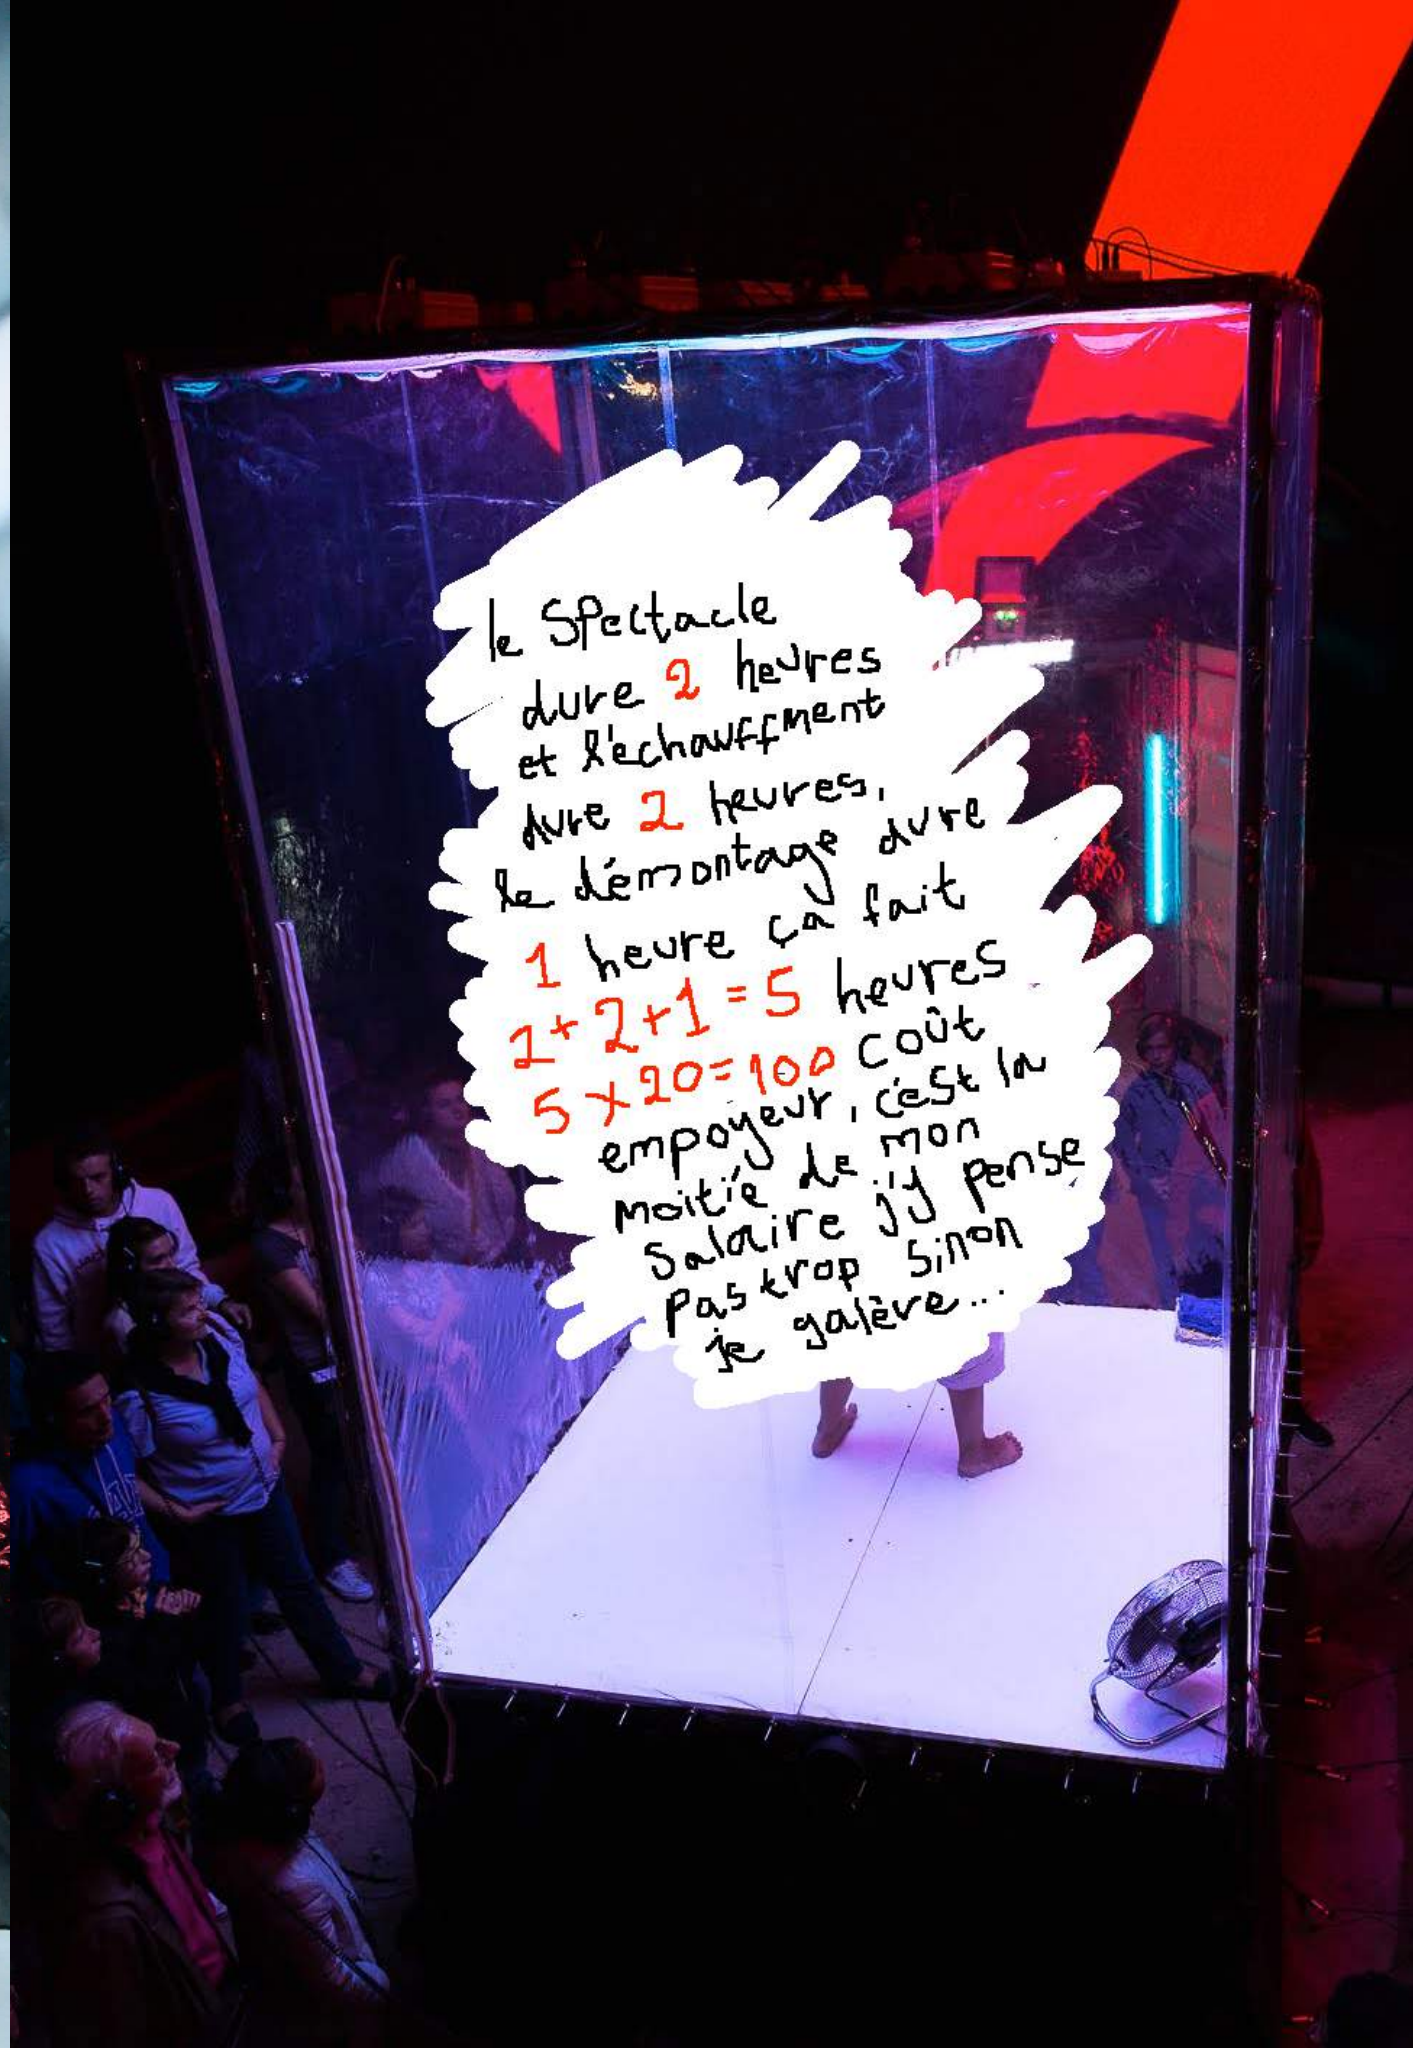 le Spectacle
dure 2 heures
et l'échauffment
dure 2 heures,
le démontage dure
1 heure ça fait
2+2+1=5 heures
5x20=100 coût
empoyeur, c'est la
moitié de mon
Salaire j'y pense
pas trop Sinon
je galère...